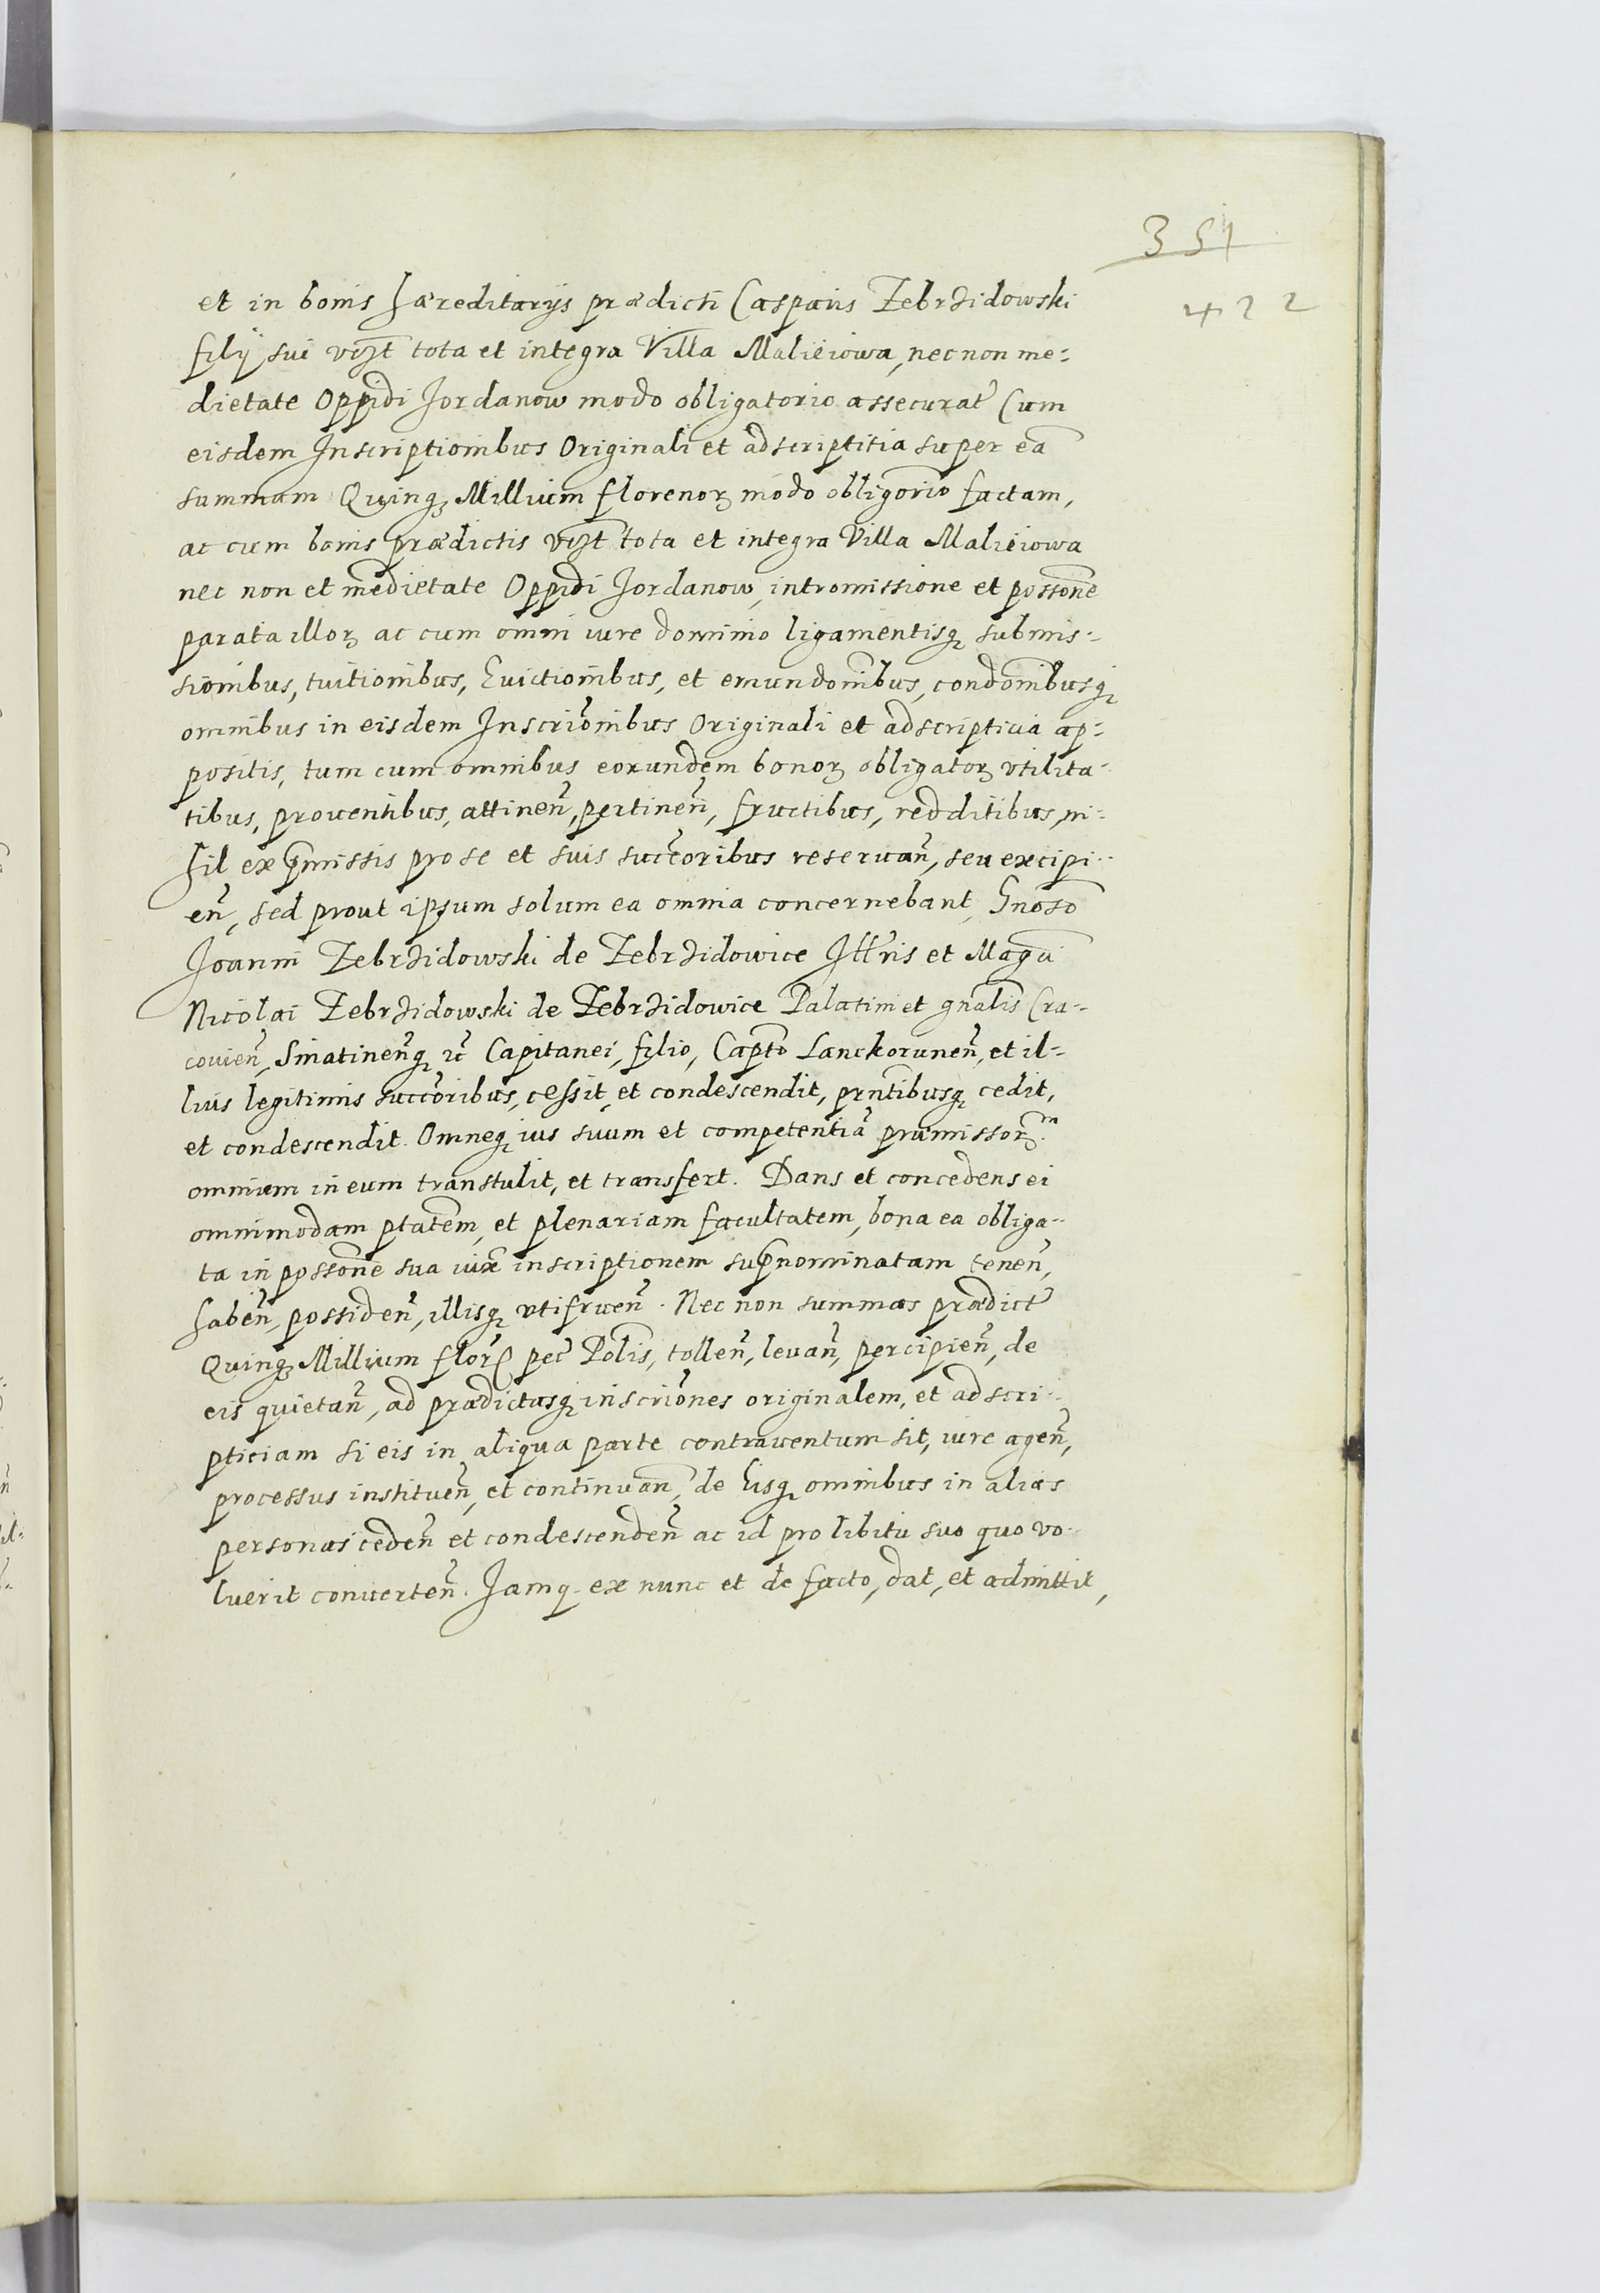 351
422
et in bonis Hæreditarijs prædicti Casparis Zebrzidowski
filij sui vizt tota et integra Villa Maliéiowa, nec non me-
dietate Oppidi Jordanow modo obligatorio assecurat Cum
eisdem Inscriptionibus Originali et adscriptitia super eã
summam Quinq̨ Millium florenoꝝ modo obligorio factam,
ac cum bonis prædictis vizt tota et integra Villa Maliéiowa
nec non et medietate Oppidi Jordanow, intromissione et possone
parata illoꝝ ac cum omni iure dominio ligamentisq̨ submis-
sionibus, tuitionibus, Euictionibus, et emundonibus, condonibusq̨
omnibus in eisdem Inscrionibus Originali et adscripticia ap-
positis, tum cum omnibus eorundem bonoꝝ obligatoꝝ vtilita-
tibus, prouentibus, attineñ, pertineñ, fructibus, redditibus, ni-
hil ex p̃missis pro se et suis succoribus reseruañ, seu excipi-
eñ, sed prout ipsum solum ea omnia concernebant, Gnoso
Joanni Zebrzidowski de Zebrzidowice Illris et Magci
Nicolai Zebrzidowski de Zebrzidowice Palatini et gnalis Cra-
couieñ, Sniatineñq̨ ꝛc̃ Capitanei, filio, Capto Lanckoruneñ, et il-
lius legitimis succoribus, cessit, et condescendit, prntibusq̨ cedit,
et condescendit. Omneq̨ ius suum et competentiã præmissoꝝ m
omnium in eum transtulit, et transfert. Dans et concedens ei
omnimodam ptatem, et plenariam facultatem, bona ea obliga-
ta in possone sua iux̃ inscriptionem sup̃nominatam teneñ,
habeñ, possideñ, illisq̨ vtifrueñ. Nec non summas prædict
Quinq̨ Millium flor̃ pec̃ Polis, tolleñ, leuañ, percipieñ, de
eis quietañ, ad prædictasq̨ inscriones originalem, et adscri-
pticiam si eis in aliqua parte contrauentum sit, iure ageñ,
processus institueñ, et continuañ, de Eisq̨ omnibus in alias
personas cedeñ et condescendeñ ac id pro libitu suo quo vo-
luerit conuerteñ. Jamq̨ ex nunc et de facto, dat, et admittit,